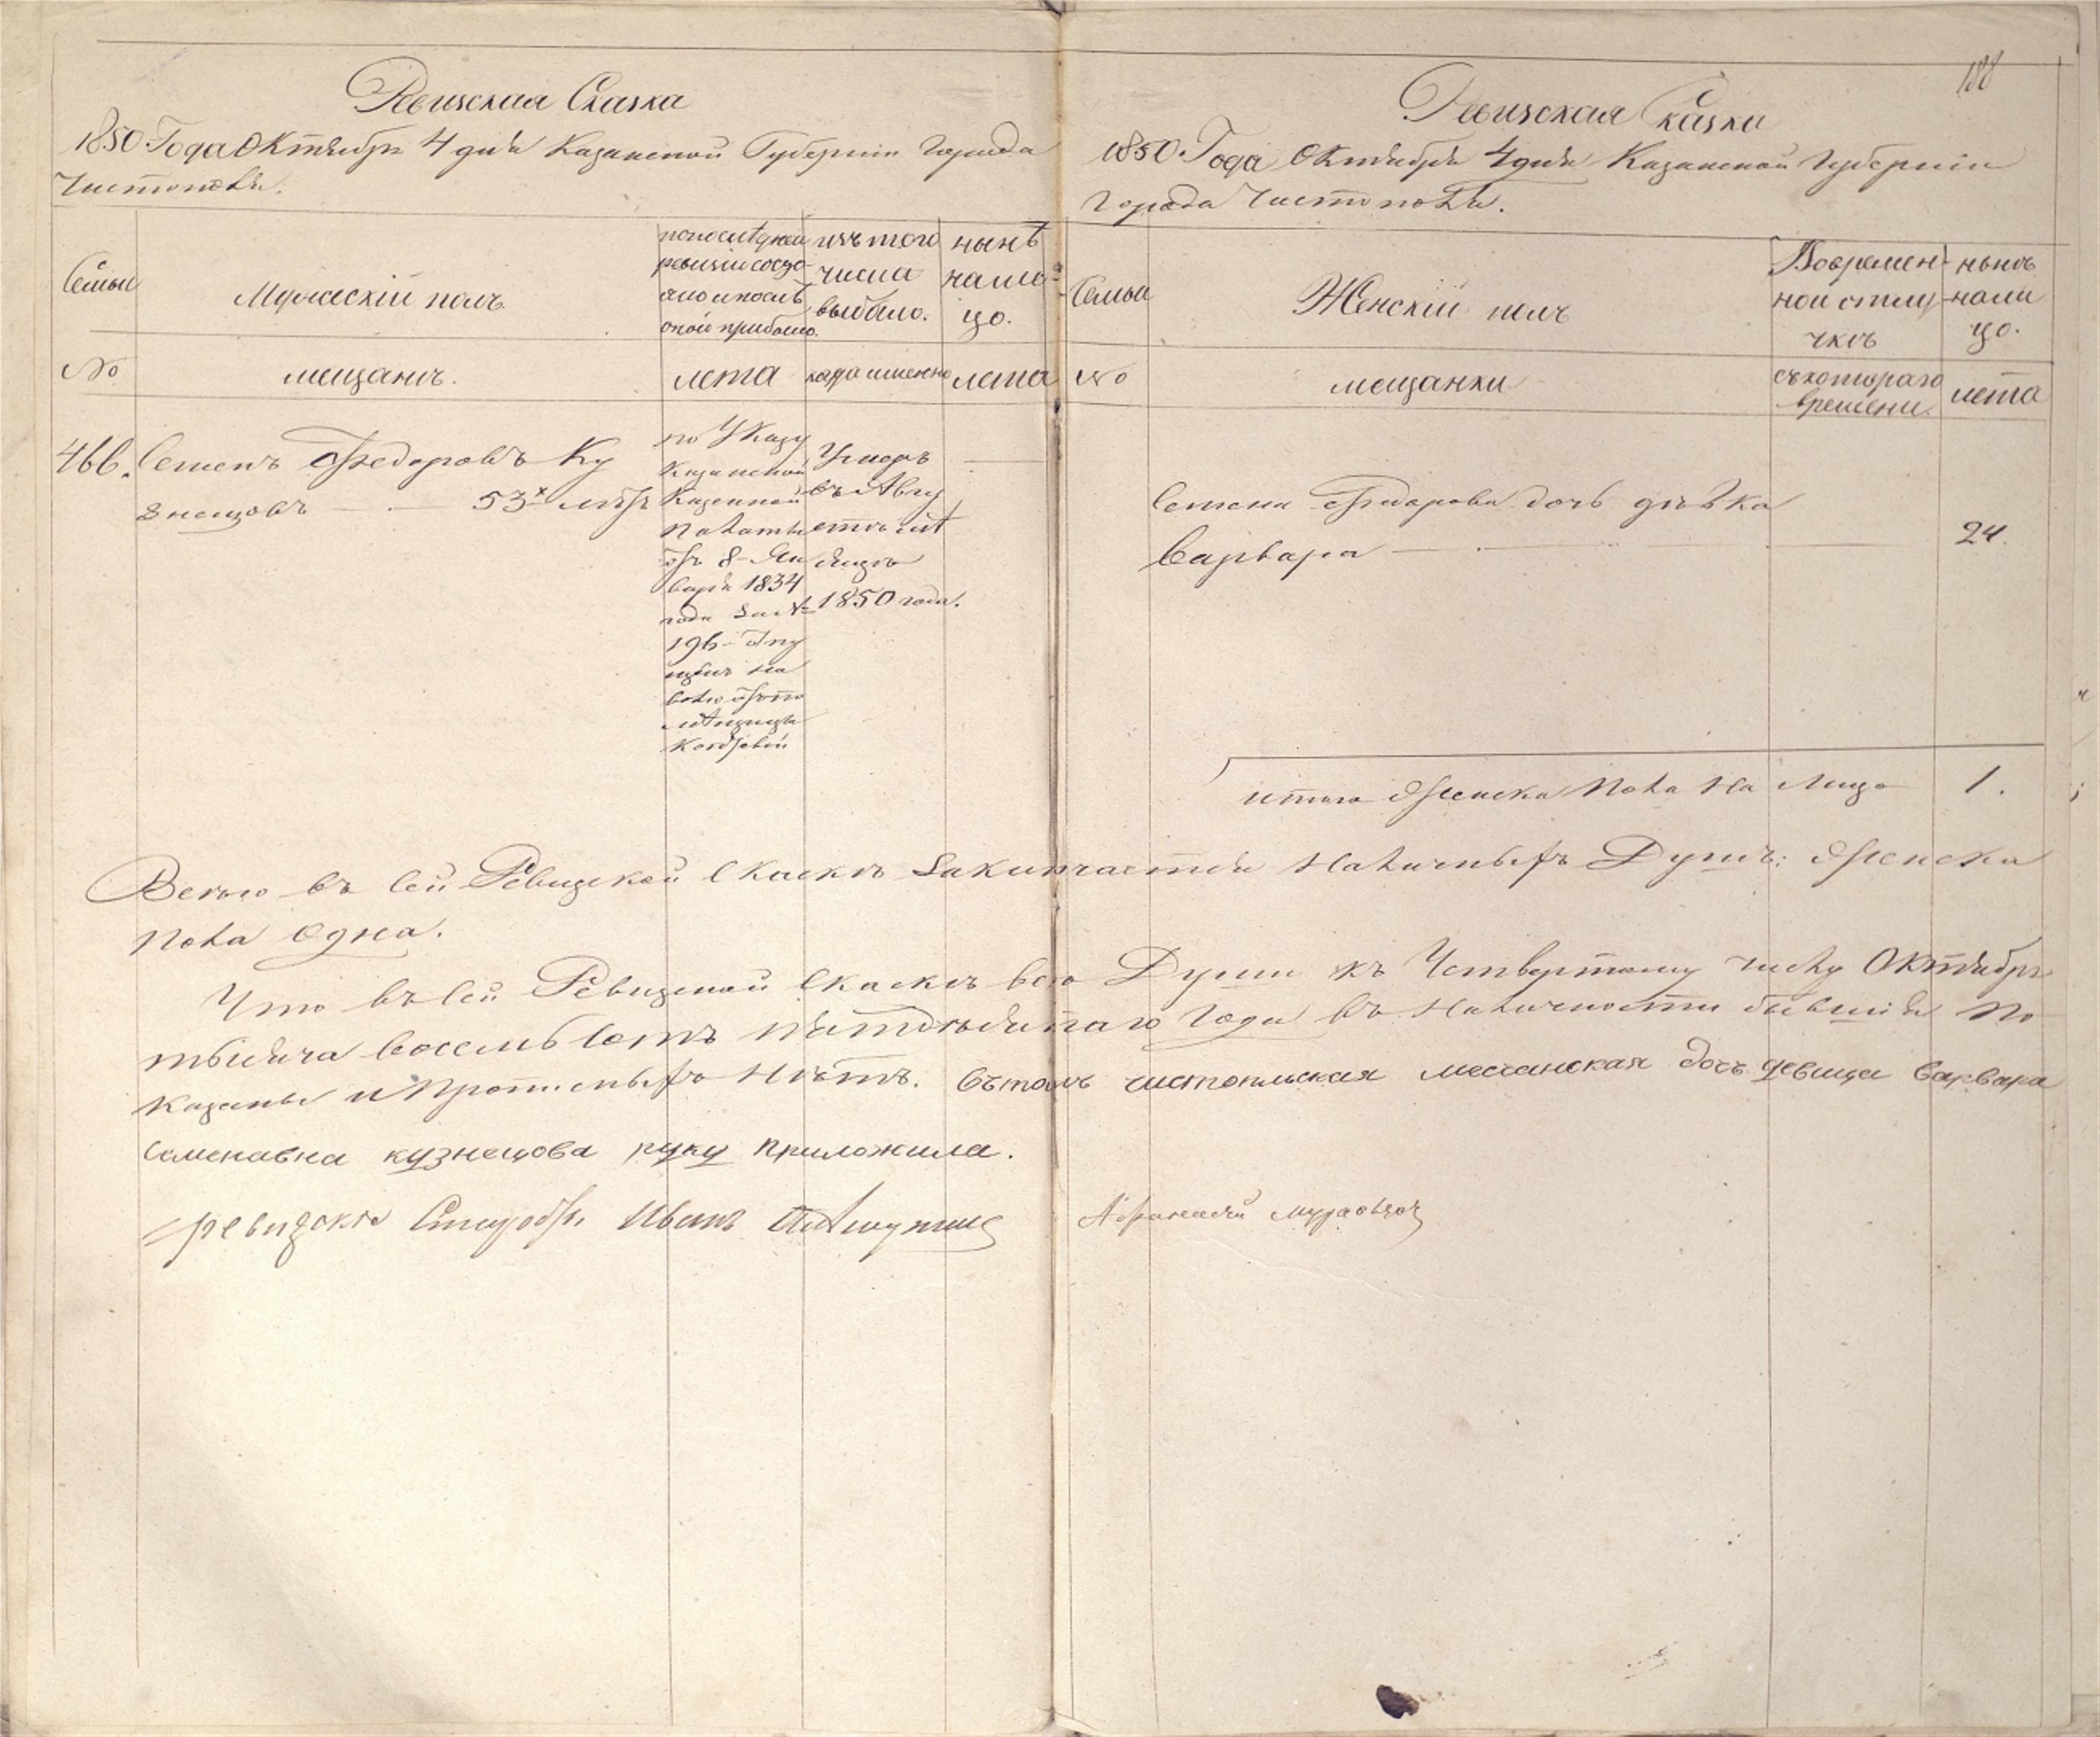 188
Ревизская Сказка
1850 Года Октября 4 дня Казанской Губернии Города
Чистополя.
Семьи
Мужескій полъ.
по последней
ревизіи состо-
яло и послѣ
оной прибыло.
изъ того
числа
выбыло.
нынѣ
на ли-
цо.
№
мещанъ.
лета
когда именно
лета
466.
Семенъ Федоровъ Ку
знецовъ — 53х лѣтъ
по Указу
Казанской
Казенной
Палаты
отъ 8 Ян
варя 1834
года за №
196
на
волю отъ по
мѣщицы
Умеръ
въ Авгу
стѣ мѣ
сяцѣ
1850 года.
Ревизская Сказка
1850 Года Октября 4 дня Казанской Губерніи
Города Чистополя.
Семьи
Женскій полъ
Во времен-
ной отлу-
чкѣ
нынѣ
на ли
цо.
№
мещанки
съ котораго
времени.
лета
Семена Федорова дочь дѣвка
Варвара — 24.
итого Женска Пола На Лицо 1.
Всего въ Сей Ревизской Скаскѣ Заключается Наличныхъ Душъ: Женска
Пола Одна.
Что въ Сей Ревизской Скаскѣ все Души къ Четвертому числу Октября
тысяча восемь Сотъ Пятдесятаго Года въ Наличности бывшія По
казаны и Прописныхъ Нѣтъ. Въ томъ чистопольская месчанская дочь девица Варвара
Семенавна кузнецова руку приложила.
Ревизскій Иванъ